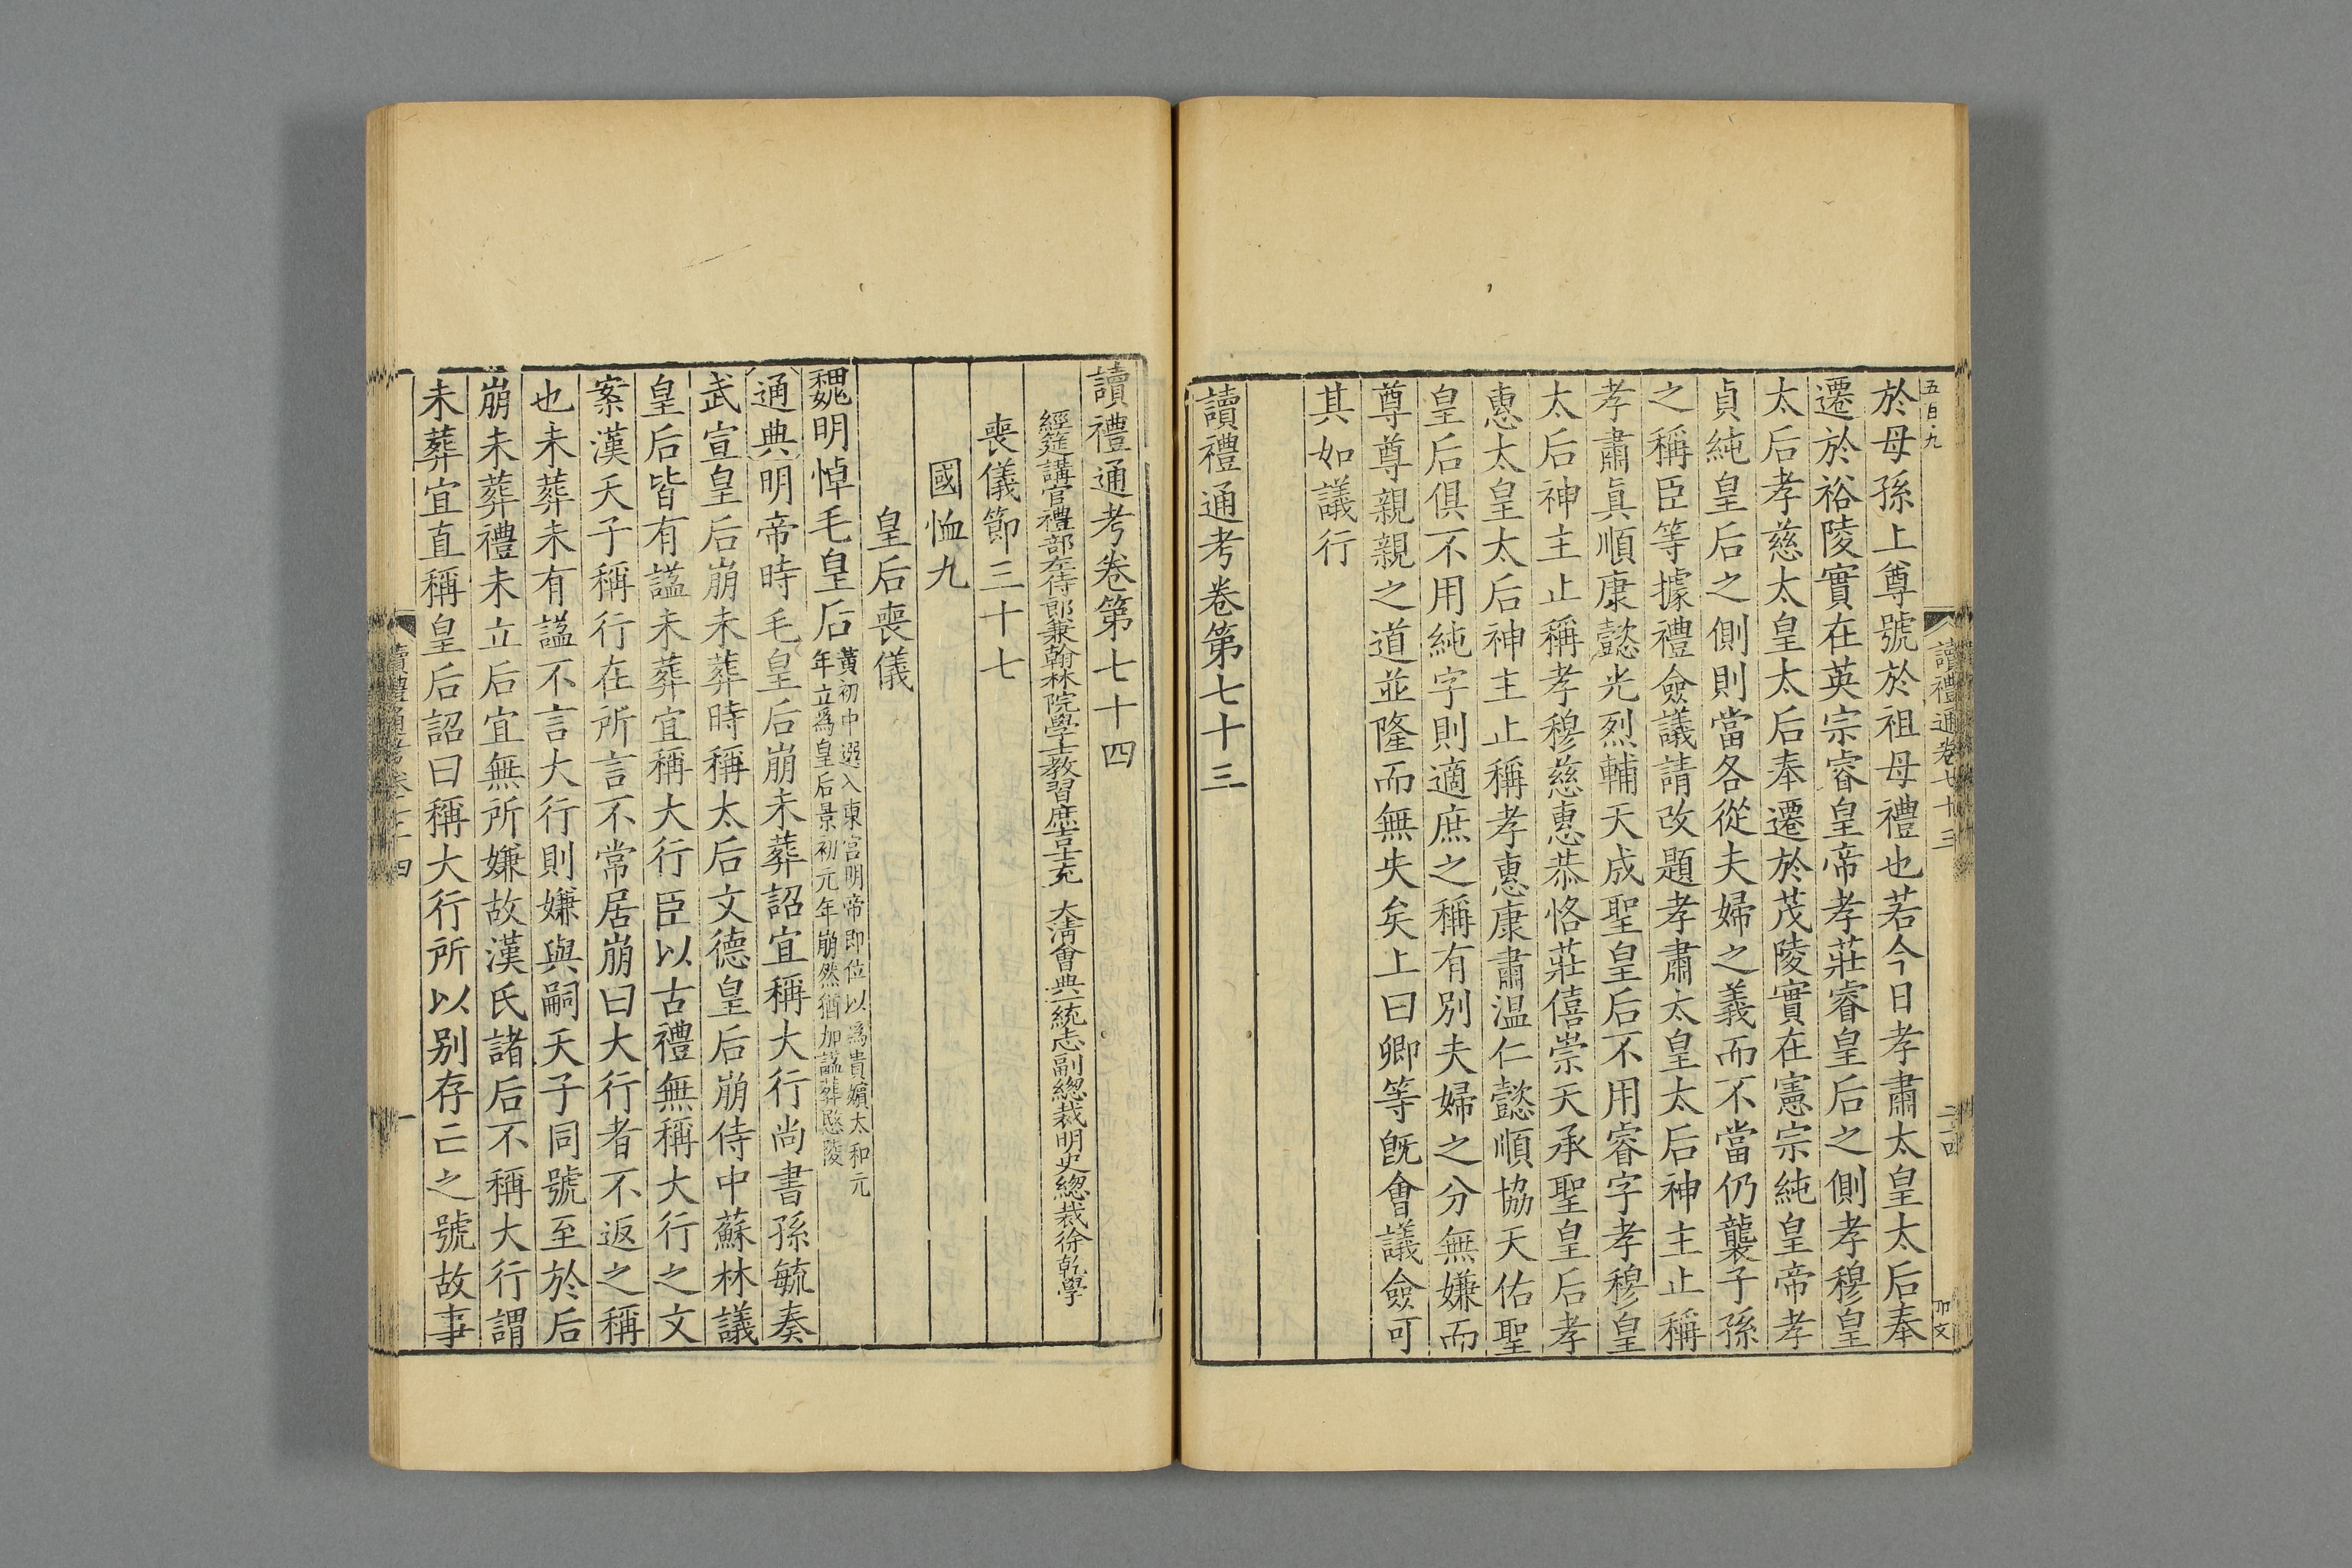 五百九
讀禮通卷七十三
二四
於母孫上尊號於祖母禮也若今日孝肅太皇太后奉
遷於裕陵實在英宗睿皇帝孝莊睿皇后之側孝穆皇
太后孝慈太皇太后奉遷於茂陵實在憲宗純皇帝孝
貞純皇后之側則當各從夫婦之義而不當仍襲子孫
之稱臣等據禮僉議請改題孝肅太皇太后神主止稱
孝肅眞順康懿光烈輔天成聖皇后不用睿字孝穆皇
太后神主止稱孝穆慈惠恭恪莊僖崇天承聖皇后孝
惠太皇太后神主止稱孝惠康肅温仁懿順協天佑聖
皇后俱不用純字則適庶之稱有別夫婦之分無嫌而
尊尊親親之道並隆而無失矣上曰卿等旣會議僉可
其如議行
讀禮通考卷第七十三
讀禮通考卷第七十四
經筵講官禮部左侍郎兼翰林院學士教習庶吉士充　大清會典一統志副總裁明史總裁徐乾學
喪儀節三十七
國恤九
皇后喪儀
魏明悼毛皇后黃初中選入東宮明帝即位以爲貴嬪太和元
年立爲皇后景初元年崩然猶加諡葬愍陵
通典明帝時毛皇后崩未葬詔宜稱大行尚書孫毓奏
武宣皇后崩未葬時稱太后文德皇后崩侍中蘇林議
皇后皆有諡未葬宜稱大行臣以古禮無稱大行之文
案漢天子稱行在所言不常居崩曰大行者不返之稱
也未葬未有諡不言大行則嫌與嗣天子同號至於后
崩未葬禮未立后宜無所嫌故漢氏諸后不稱大行謂
未葬宜直稱皇后詔曰稱大行所以别存亡之號故事
讀禮通考卷七十四
一